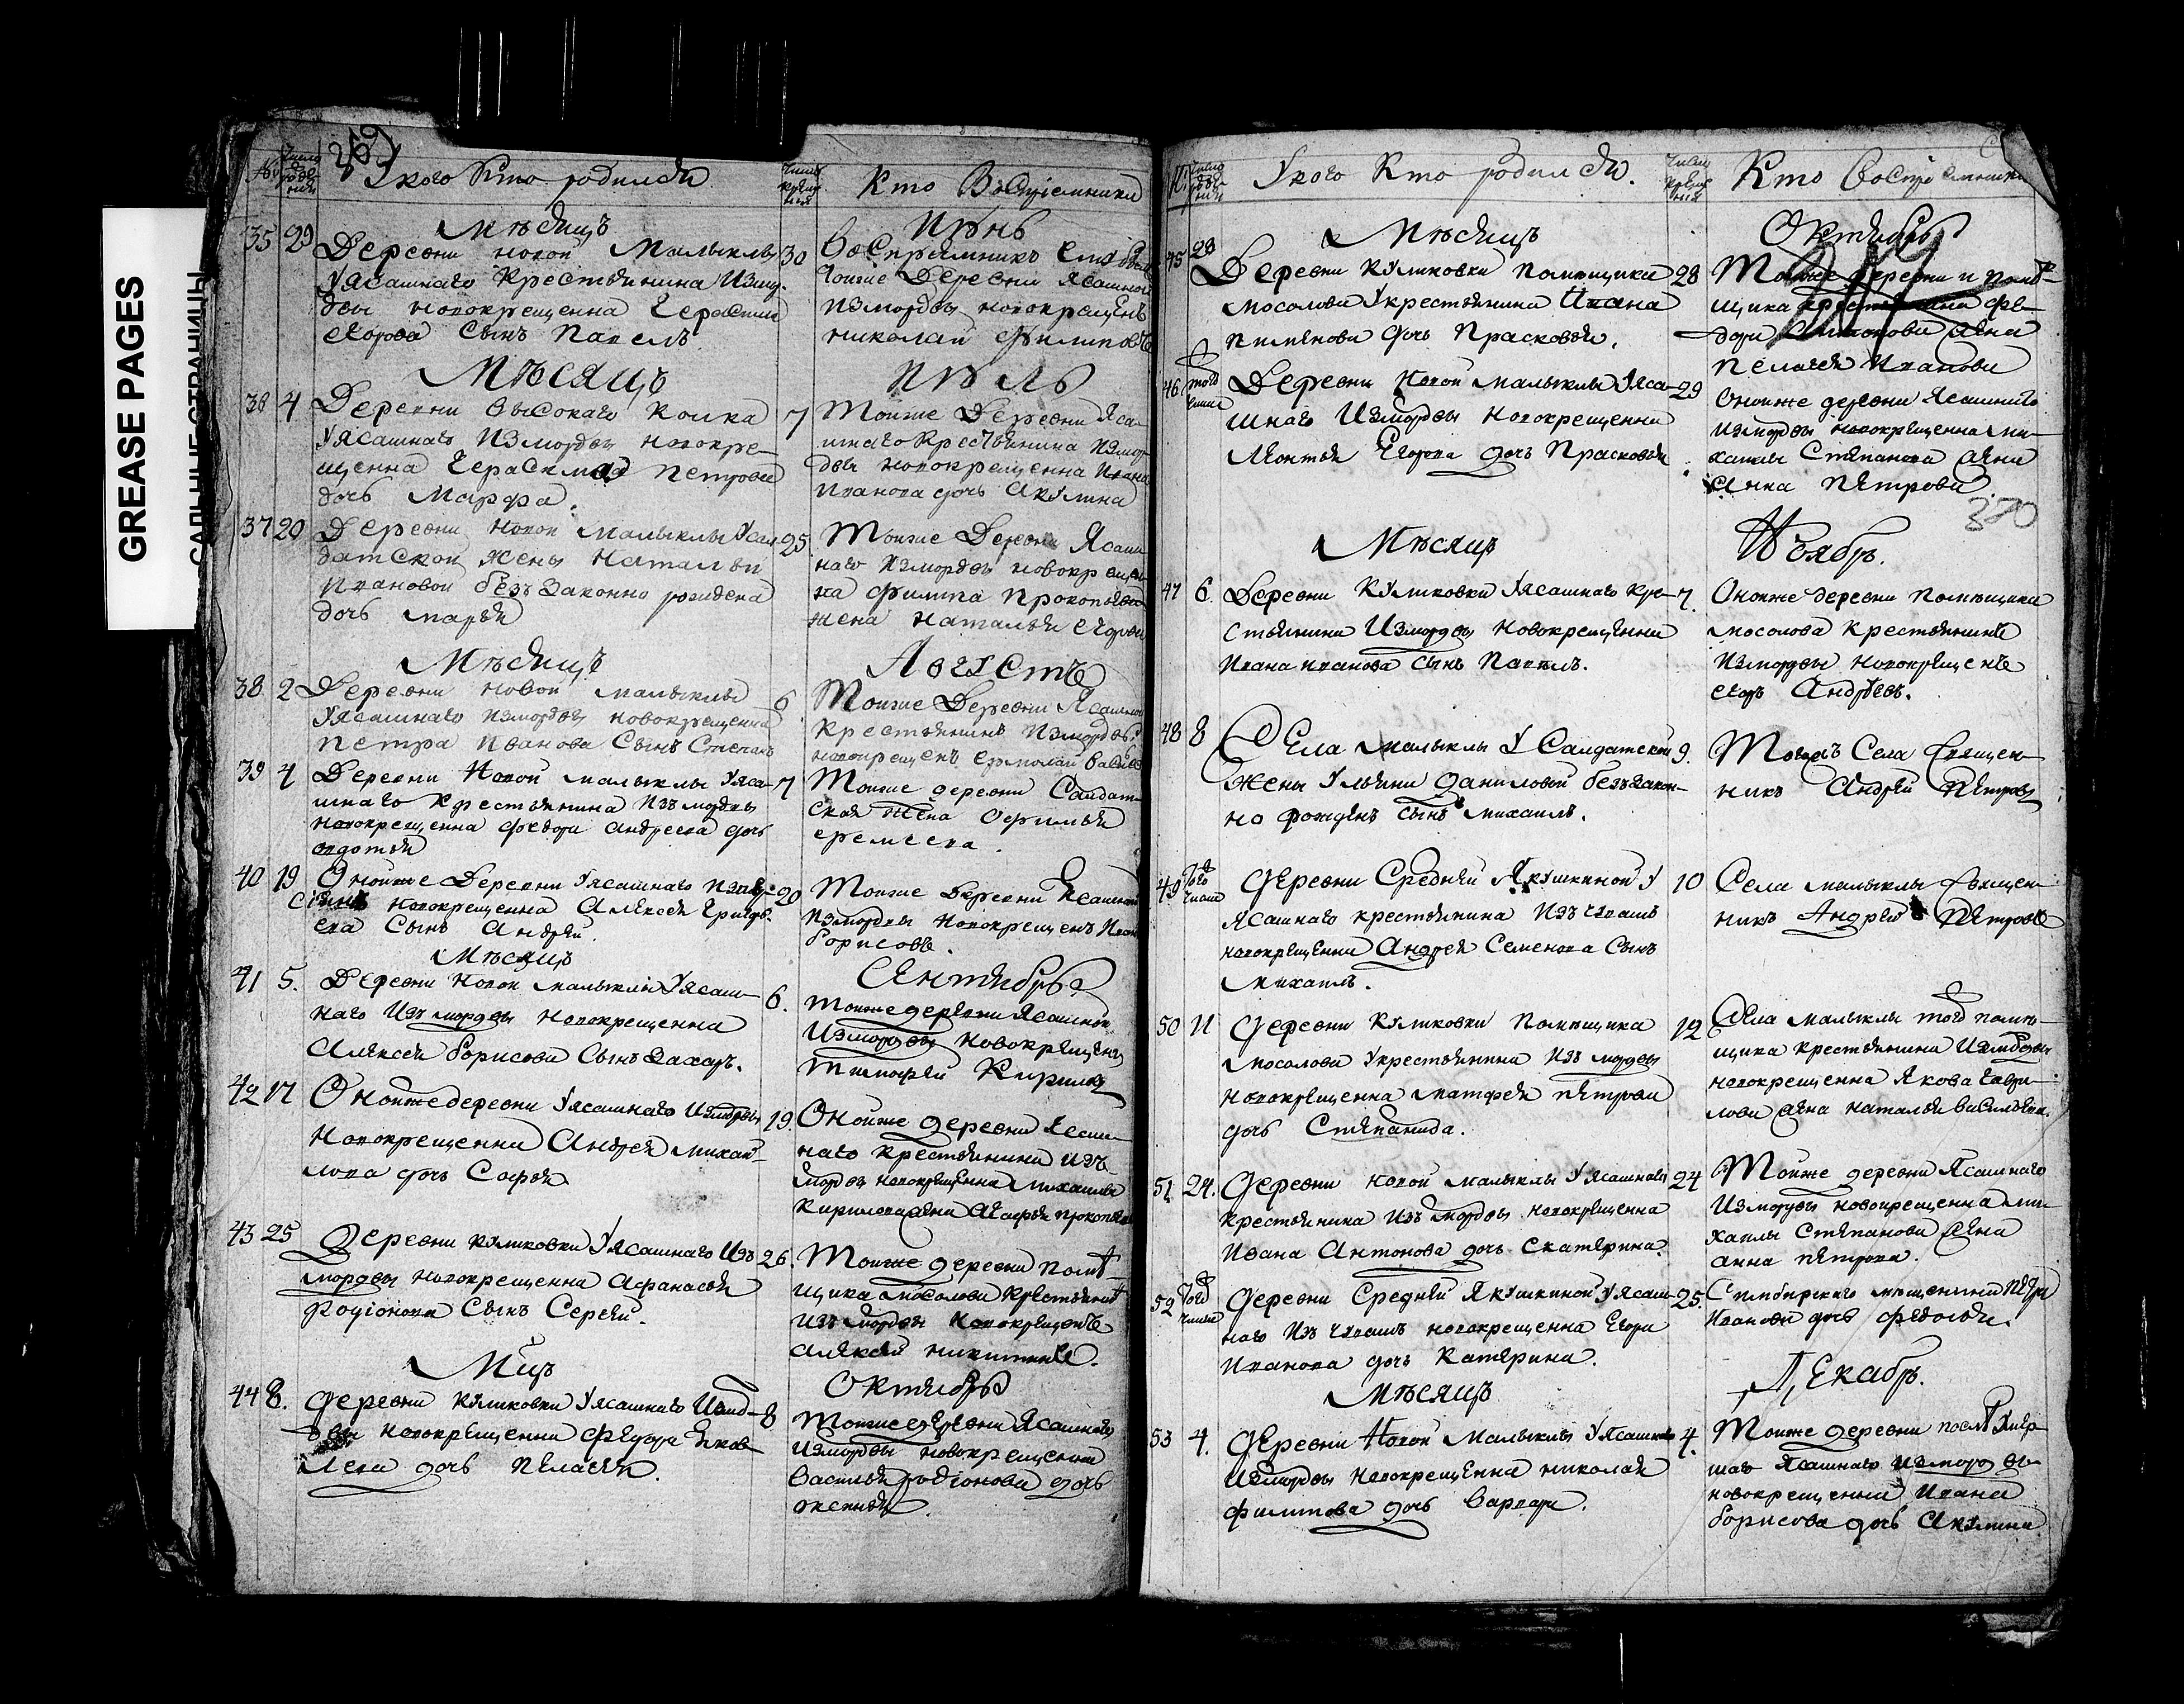 GREASE PAGES
САЛЬНЫЕ СТРАНИЦЫ
№
Число рождения
У кого Кто родился
Число крещения
Кто Воспріемники
Мѣсяцъ
Іюнь
35 29 Деревни новой Малыклы
Уясашнаго Крестьянина Измор
двы новокрещенна Герасима
Егорова Сынъ Павелъ
30 Воспріемникъ
тоиже Деревни Ясашной
измордвы новокрещенъ
николай Филиповъ
Мѣсяцъ
Іюль
36 4 Деревни высокаго Колка
Уясашнаго Измордвы новокре-
щенна Герасима Петрова
дочь Марфа.
7 Тоиже Деревни Яса-
шнаго Крестьянина Измор
двы новокрещенна Ивана
Иванова дочь Акулина
37 20 Деревни новой Малыклы Усал
датской жены Натальи
Ивановой безъ Законно рождена
дочь марья
25 Тоиже Деревни Ясаш
наго Измордвы новокрещен
на филипа Прокопьева
жена Наталья Егорова
Мѣсяцъ
Августъ
38 2 Деревни новой малыклы
Уясашнаго измордвы новокрещенна
Петра Иванова Сынъ Степанъ
6 Тоиже Деревни Ясашной
Крестьянинъ Измордвы
новокрещенъ ермолай
39 4 Деревни Новой малыклы Уяса-
шнаго Крестьянина Изъ мордвы
новокрещенна Федора андреева дочь
авдотья
7 Тоиже деревни Салдат-
ская жена Офимья
еремеева.
40 19 Оноиже Деревни Уясашнаго
новокрещенна Алексея Григорь-
ева Сынъ Андрей.
20 Тоиже Деревни Ясашной
Измордвы новокрещенъ Иванъ
борисовъ.
Мѣсяцъ
Сентябрь
41 5. Деревни Новой малыклы Уясаш-
наго Изъ мордвы Новокрещенна
Алексея борисова Сынъ Захаръ.
6. тоиже деревни Ясашной
Измордвы новокрещенъ
Тимофей Кириловъ
42 17 Оноиже деревни Уясашнаго Измордвы
Новокрещенна Андрея михаи-
лова дочь Софья
19. Оноиже деревни Ясаш-
наго Крестьянина изъ
мордвы новокрещенна михаилы
Кирилова жена Агафья прокопьева
43 25 Деревни куликовки Уясашнаго Изъ
мордвы новокрещенна Афанасья
Родіонова Сынъ Сергей.
26. Тоиже деревни помѣ-
щика мосолова Крестьянинъ
изъ мордвы Новокрещенъ
алексей никитинъ.
Мцъ
Октябрь
44 8. Деревни Куликовки Уясашнаго
двы новокрещенна Федора Яков-
лева дочь Пелагея.
8 Тоиже деревни Ясашнаго
измордвы новокрещенна
Василья родіонова дочь
аксинья.
№
Число рождения
У кого Кто родился.
Число крещения
Кто Воспріемники
Мѣсяцъ
Октябрь
45 28 Деревни Куликовки помѣщика
мосолова Укрестьянина Ивана
пименова дочь Прасковья.
28 Тоиже деревни и помѣ-
щика крестьянина фе-
дора Антонова жена
Пелагея Иванова
46 того числа Деревни Новой малыклы Уяса-
шнаго Измордвы Новокрещенна
Леонтья Егорова дочь Прасковья
29 Оноиже деревни Ясашнаго
Измордвы новокрещенна ми-
хаилы Степанова жена
Анна Петрова
370
Мѣсяцъ
Ноябрь.
47 6. Деревни Куликовки Уясашнаго кре-
стьянина Измордвы Новокрещенна
Ивана иванова сынъ Павелъ.
7. Оноиже деревни Помѣщика
мосолова Крестьянинъ
Измордвы новокрещенъ
егоръ Андрѣевъ.
48 8 Села малыклы У Салдатской
жены Ульяны даниловой безъ закон-
но рожденъ сынъ михаилъ.
9. Тогожъ Села Священ-
никъ Андрей Петровъ
49 того числа Деревни Средней Якушкиной У
ясашнаго крестьянина Изъ чювашъ
новокрещенна Андрея Семенова Сынъ
михаилъ.
10 Села малыклы Священ-
никъ Андрей Петровъ
50 11 Деревни Куликовки Помѣщика
мосолова Укрестьянина изъ мордвы
новокрещенна матфея петрова
дочь Степанида.
12 Села малыклы того помѣ-
щика крестьянина Измордвы
новокрещенна Якова гаври-
лова жена наталья васильева.
51 24. Деревни новой малыклы Уясашнаго
крестьянина Изъ мордвы новокрещенна
Ивана Антонова дочь екатерина.
24 Тоиже деревни Ясашнаго
Измордвы новокрещенна ми-
хаилы Степанова жена
анна петрова.
52 того числа Деревни Средней Якушкиной Уясаш-
наго Изъ чювашъ новокрещенна Егора
Иванова дочь катерина.
25. Симбирскаго мѣщенина петра
Иванова дочь
Мѣсяцъ
Декабрь.
53 4. Деревни Новой малыклы Уясашнаго
измордвы новокрещенна николая
филипова дочь Варвара.
4. Тоиже деревни послѣ Умер-
шаго Ясашнаго измордвы
новокрещенна Ивана
борисова дочь Акулина